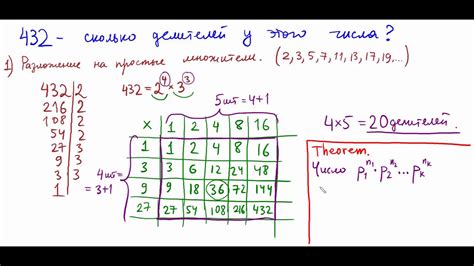 432 - сколько делителей у этого числа?
1) Разложение на простые множители. (2,3,5,7,11,13,17,19,...)
432 | 2
216 | 2
108 | 2
54 | 2
27 | 3
9 | 3
3 | 3
1
432 = 2^4 × 3^3
5шт = 4+1
4шт = 3+1
× 1 2 4 8 16
1 1 2 4 8 16
3 3 6 12 24 48
9 9 18 36 72 144
27 27 54 108 216 432
4×5 = 20 делителей.
Theorem.
Число p₁^n₁ · p₂^n₂ ... pₖ^nₖ